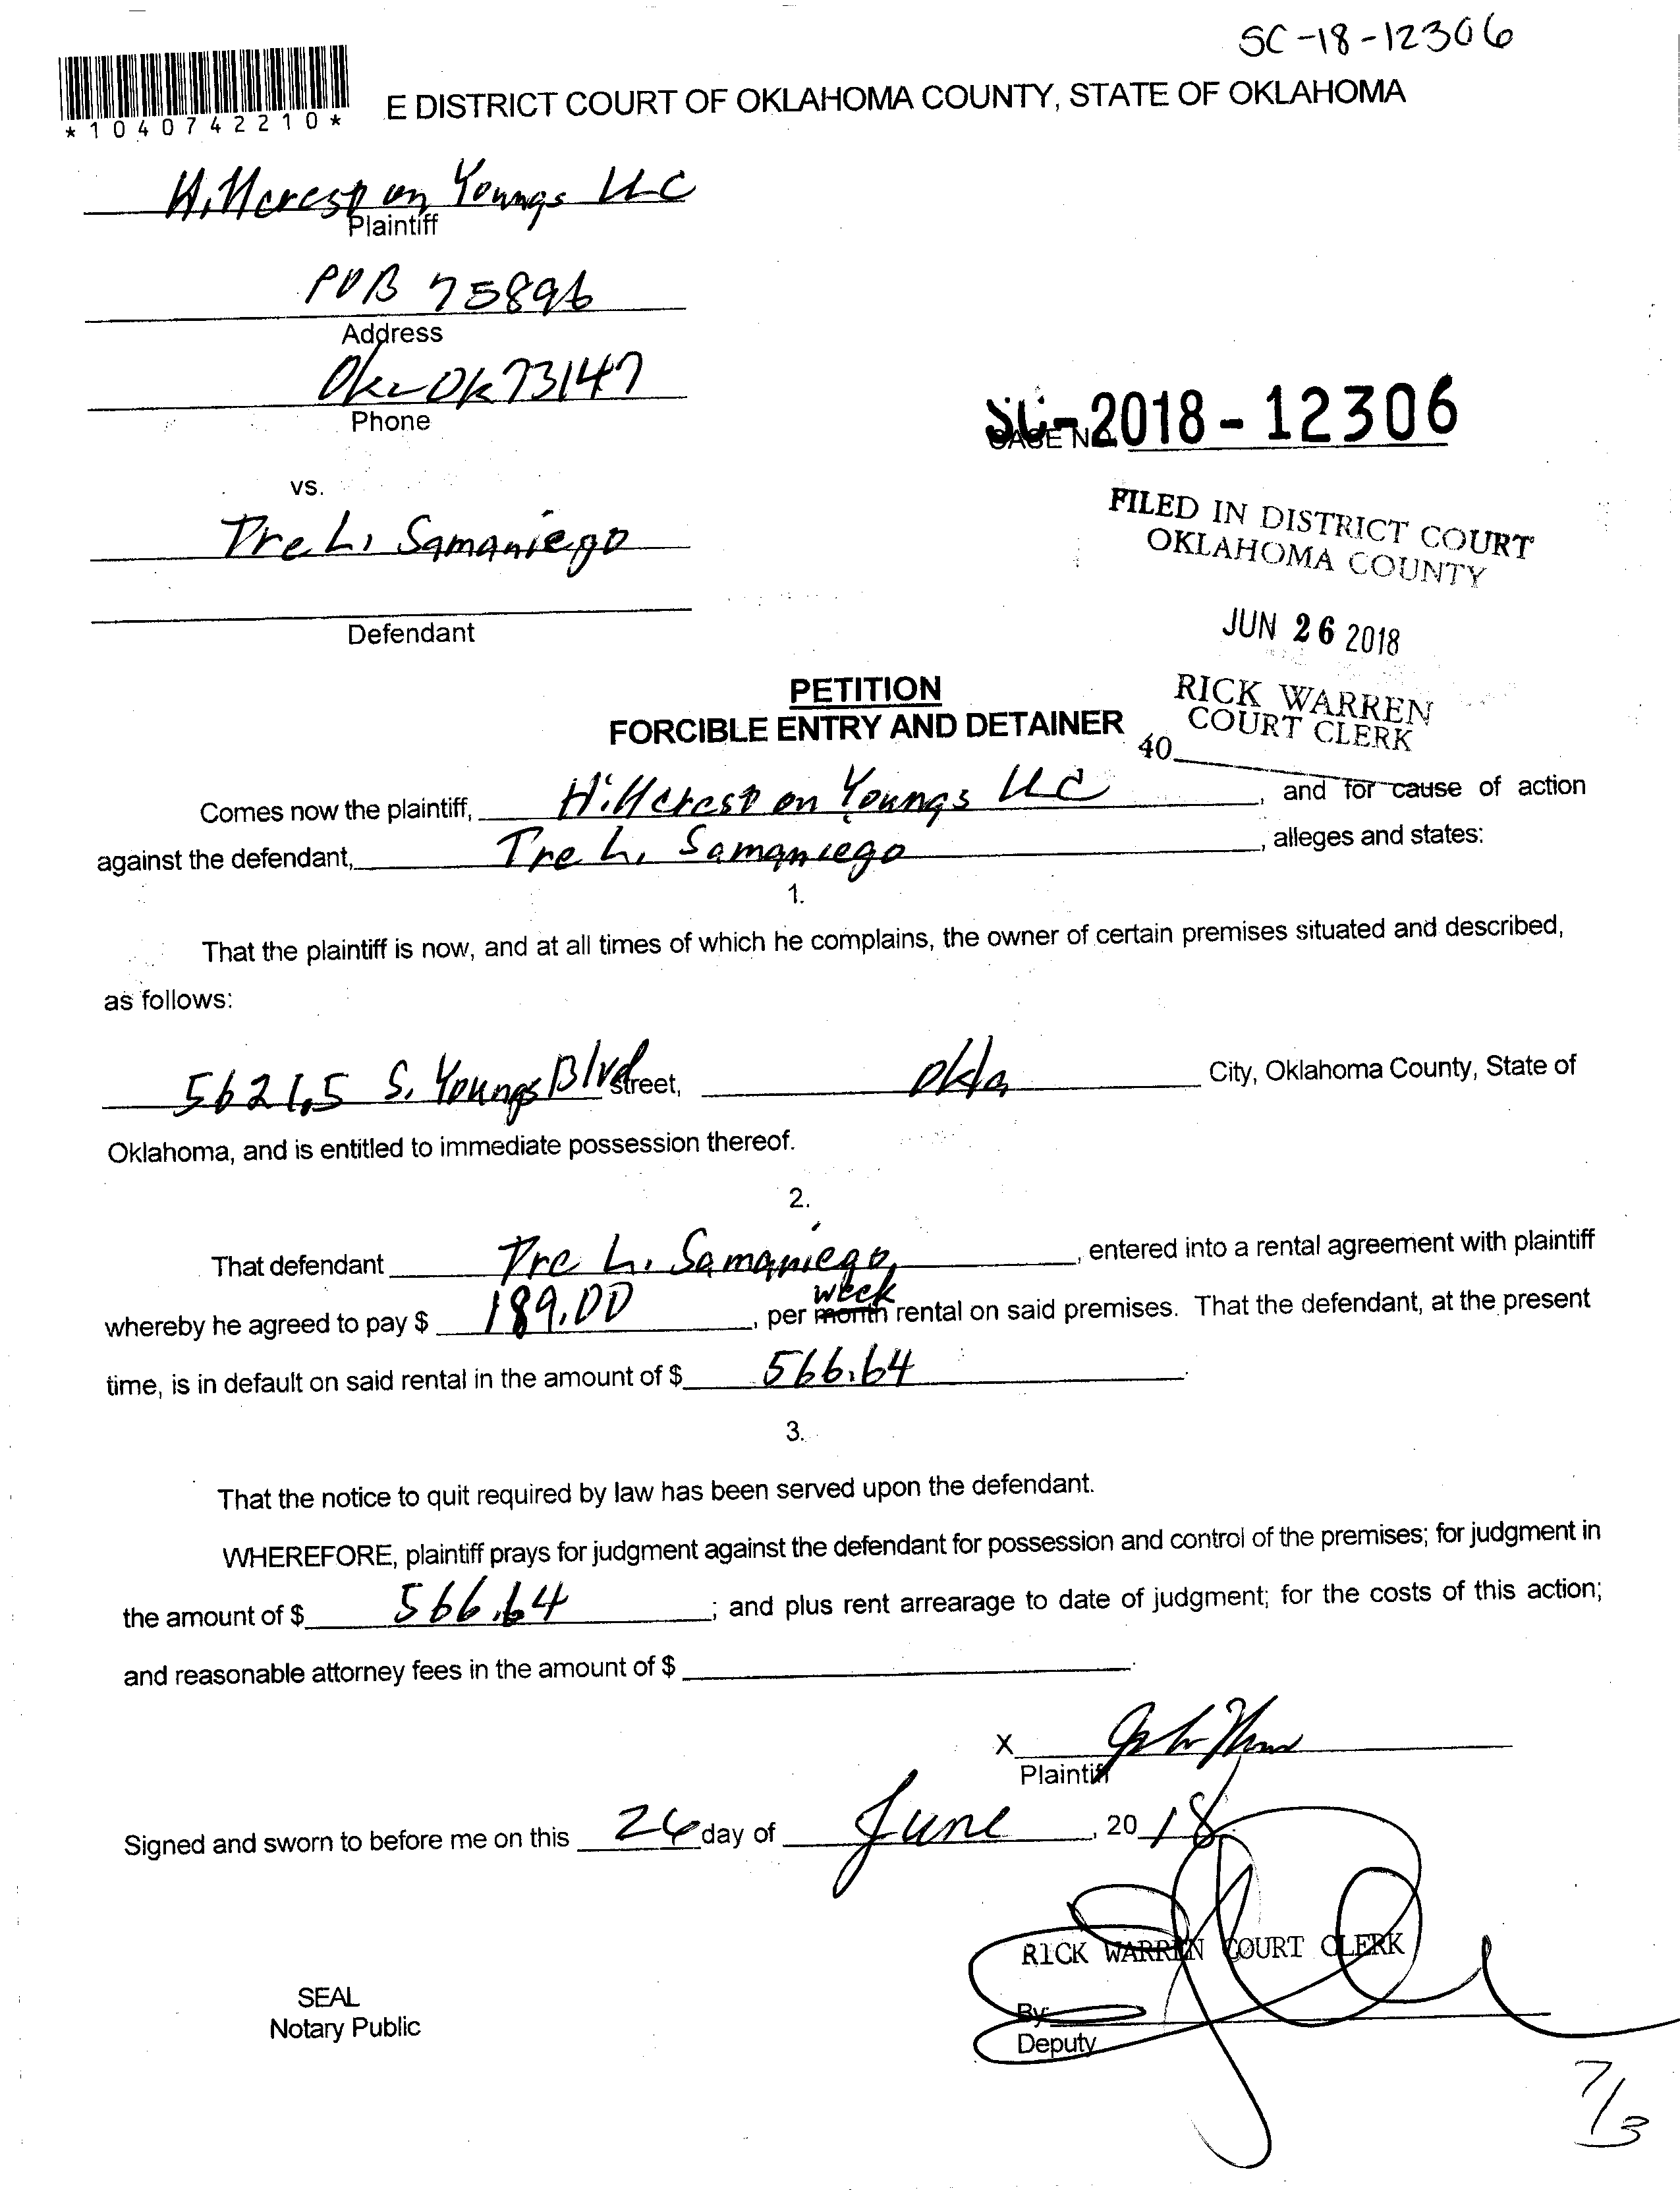 SC-18-12306
*1040742210*
E DISTRICT COURT OF OKLAHOMA COUNTY, STATE OF OKLAHOMA
Hillcrest on Youngs LLC
Plaintiff
POB 75896
Address
Okc Ok 73147
Phone
SC-2018-12306
CASE NO.
vs.
Tre L. Samaniego
Defendant
FILED IN DISTRICT COURT
OKLAHOMA COUNTY
JUN 26 2018
RICK WARREN
COURT CLERK
40
PETITION
FORCIBLE ENTRY AND DETAINER
Comes now the plaintiff, Hillcrest on Youngs LLC, and for cause of action
against the defendant, Tre L. Samaniego, alleges and states:
1.
That the plaintiff is now, and at all times of which he complains, the owner of certain premises situated and described,
as follows:
5621.5 S. Youngs Blvd street, Okla City, Oklahoma County, State of
Oklahoma, and is entitled to immediate possession thereof.
2.
That defendant Tre L. Samaniego, entered into a rental agreement with plaintiff
week
whereby he agreed to pay $ 189.00, per month rental on said premises. That the defendant, at the present
time, is in default on said rental in the amount of $ 566.64.
3.
That the notice to quit required by law has been served upon the defendant.
WHEREFORE, plaintiff prays for judgment against the defendant for possession and control of the premises; for judgment in
the amount of $ 566.64; and plus rent arrearage to date of judgment; for the costs of this action;
and reasonable attorney fees in the amount of $
X
Plaintiff
Signed and sworn to before me on this 26 day of June, 2018
RICK WARREN COURT CLERK
SEAL
Notary Public
By
Deputy
7/3